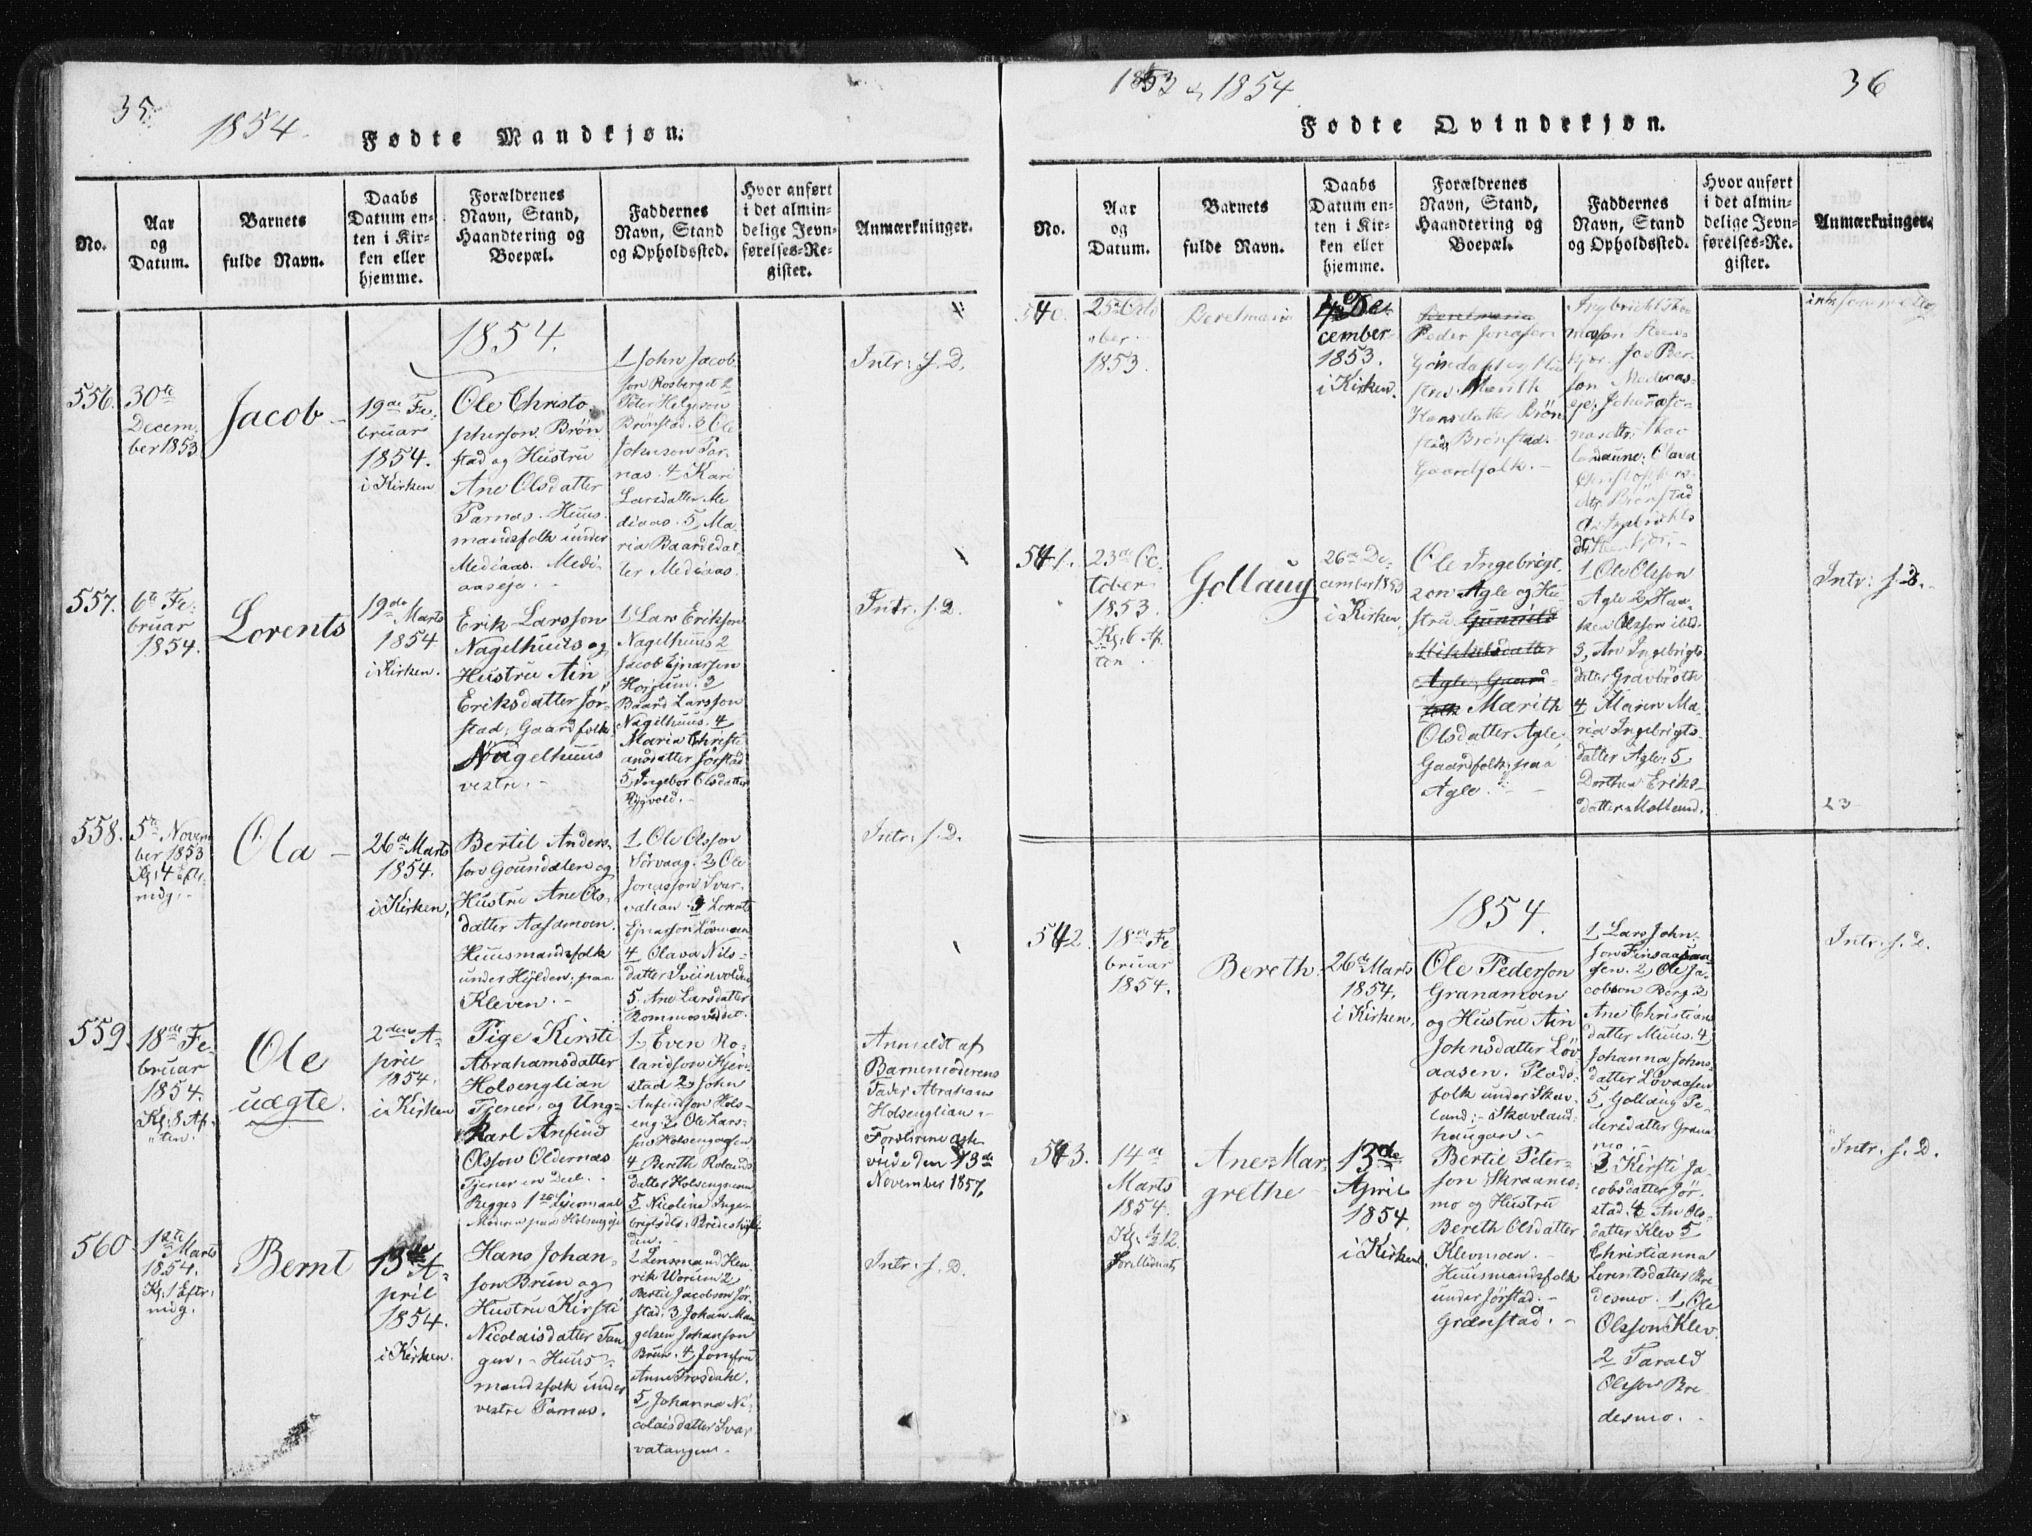 35.
1854.
Fødte Mandkjøn.
No.
Aar
og
Datum.
Barnets
fulde Navn.
Daabs
Datum en-
ten i Kir-
ken eller
hjemme.
Forældrenes
Navn, Stand,
Haandtering og
Boepæl.
Faddernes
Navn, Stand
og Opholdssted.
Hvor anført
i det almin-
delige Jevn-
førelses-Re-
gister.
Anmærkninger.
1854.
556.
30te
Decem-
ber 1853
Jacob -
19de Fe-
bruar
1854.
i Kirken
Ole Christo-
phersøn Brøn-
stad og Hustru
Ane Olsdatter
Parnas. Huus-
mandsfolk under
Mediaas. Medi-
aaseje. -
1 John Jacob-
søn Rosberget 2
Peter Helgeson
Brønstad. 3 Ole
Johnson Par-
nas. 4 Kari
Larsdatter Me-
diaas. 5, Ma-
ria Baardsdat-
ter Mediaas.
Intr: f. D.
557.
6te Fe-
bruar
1854.
Lorents
19de Marts
1854
i Kirken.
Erik Larsson
Nagelhuus og
Hustru An
Eriksdatter Jør-
stad, Gaardfolk
Nagelhuus
vestre. -
1 Lars Erikson
Nagelhuus 2
Jacob Ejnarson
Horjum. 3
Baard Larsson
Nagelhuus. 4
Maria Christi-
ansdatter Jørstad
5, Ingebor Olsdatter
Rygvold. -
Intr: f. D.
558.
5te Novem-
ber 1853
Kl: 4 Efter-
midg: -
Ola -
26de Marts
1854.
i Kirken.
Bertil Anders-
søn Goundalen og
Hustru Ane Ols-
datter Aasamoen.
Huusmandsfolk
under Hylden: paa
Kleven. -
1 Ole Olsson
Sørvaag. 2, Ole
Jonasson Svar-
valian. 3 Lorents
Ejnarson Løvmoen
4 Olava Nils-
datter Sveinvolden
5 Ane Larsdatter
Intr: f. D.
559.
18de Fe-
bruar
1854.
Kl: 8 Af-
ten.
Ole
uægte.
2den A-
pril
1854.
i Kirken
Pige Kirsti
Abrahamsdatter
Holsenglian
Tjener, og Ung-
Karl Anfind
Olsson Oldernæs
Tjener en Deel. -
Begges 1ste Lejermaal
1, Even Ro-
landson Kjeri-
stad 2 John
Anfinson Hols-
eng. 3, Ole Lars-
søn Holsengaasen
4 Bereth Rolands-
datter Holsengmoen
5 Nicoline Inge-
Anmeldt af
Barnemoderens
Fader Abraham
Holsenglian. -
November 1857.
560.
1ste Marts
1854.
Kl: 1 Eftr-
midg.
Bernt
13de A-
pril
1854.
i Kirken.
Hans Johan-
søn Brun og
Hustru Kirsti
Nicolaisdatter Tan-
gen, - Huus-
mandsfolk under
vestre Parnas.
1 Lensmand Hen-
rik Worum 2
Bertil Jacobson Jør-
stad. 3 Johan Man-
gelsen Johanson
Brun. 4 Jomfru
Anne Frosdahl.
5, Johanna Ni-
colaisdatter Svar-
vatangen -
Intr: f. D.
1853 & 1854.
36
Fødte Qvindekjøn.
No.
Aar
og
Datum.
Barnets
fulde Navn.
Daabs
Datum en-
ten i Kir-
ken eller
hjemme.
Forældrenes
Navn, Stand,
Haandtering og
Boepæl.
Faddernes
Navn, Stand
og Opholdssted.
Hvor anført
i det almin-
delige Jevn-
førelses-Re-
gister.
Anmærkninger.
540.
25de Octo-
ber
1853.
Beretmaria
4de De-
cember
1853.
i Kirken.
Beretmaria
Peder Jonasson
Hansdatter Brøn-
stad, Brønstad.
Gaardfolk. -
541.
23de Oc-
tober
1853.
Kl: 6 Af-
ten
Gollaug
26de De-
cember 1853
i Kirken.
Ole Ingebrigt-
zon Agle og Hu-
stru Gunnild
Mikkelsdatter
Agle, Gaard-
folk Marith
Olsdatter Agle.
Gaardfolk paa
Agle. -
1 Ole Olsson
Agle 2, Haa-
ken Olsson ibid:
3, An Ingebrigts-
datter Gravbrøth
4 Maren Ma-
ria Ingebrigts-
datter Agle: 5
Dorthea Eriks-
datter Moltund.
Intr: f. D. -
23
1854.
542.
18de Fe-
bruar
1854.
Bereth.
26de Marts
1854.
i Kirken.
Ole Pederson
Granamoen
og Hustru An
Johnsdatter Løv-
aasen. Plads-
folk under Skav-
land; - Skavland-
haugan. -
1 Lars John-
søn Finsaas
2, Ole Ja-
cobson Berg 3
Ane Christians-
datter Muus. 4
Johanna Johns-
datter Løvaasen
5, Gollaug Pe-
dersdatter Grana-
mo. -
Intr: f. D.
543.
14de
Marts
1854.
Kl. ½12.
Formiddag
Ane Mar-
grethe -
13de
April
1854.
i Kirken.
Bertil Peter-
søn Skraans-
mo og Hustru
Bereth Olsdatter
Klevmoen. -
Huusmandsfolk
under Jørstad. -
Grænstad. -
3 Kirsti Ja-
cobsdatter Jør-
stad. 4 An Ols-
datter Klev 5
Christianna
Lorentsdatter Bre-
desmo. 1, Ole
Olsson Klev.
2 Tarald
Olsson Bre-
desmo. -
Intr: f. D.